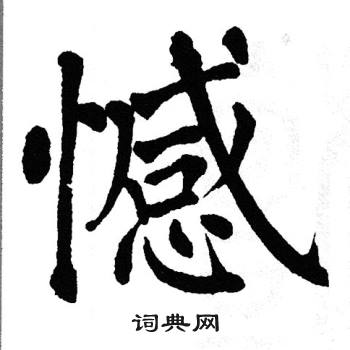 憾
词典网